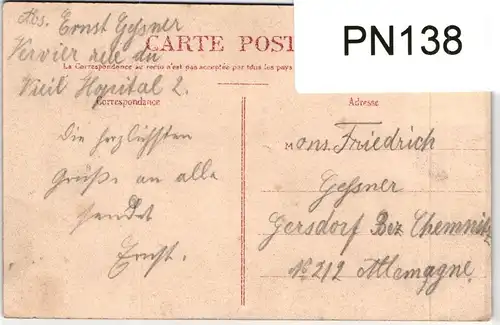 Abs. Ernst Geßner
Vervier rue du
Vieil Hopital 2.
CARTE POST
La Correspondance au recto n'est pas acceptée par tous les pays
PN138
Correspondance
Adresse
Die herzlichsten
Grüße an alle
sendet
Ernst.
Mons. Friedrich
Geßner
Gersdorf Bez Chemnitz
No 212 Allemagne.